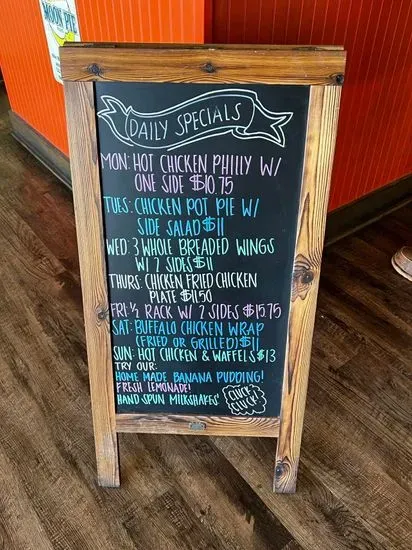 MOON PIE
DAILY SPECIALS
MON: HOT CHICKEN PHILLY W/
ONE SIDE $10.75
TUES: CHICKEN POT PIE W/
SIDE SALAD $11
WED: 3 WHOLE BREADED WINGS
W/ 2 SIDES $11
THURS: CHICKEN FRIED CHICKEN
PLATE $11.50
FRI: ½ RACK W/ 2 SIDES $15.75
SAT: BUFFALO CHICKEN WRAP
(FRIED OR GRILLED) $11
SUN: HOT CHICKEN & WAFFELS $13
TRY OUR:
HOME MADE BANANA PUDDING!
FRESH LEMONADE!
HAND SPUN MILKSHAKES!
CLUCK
CLUCK